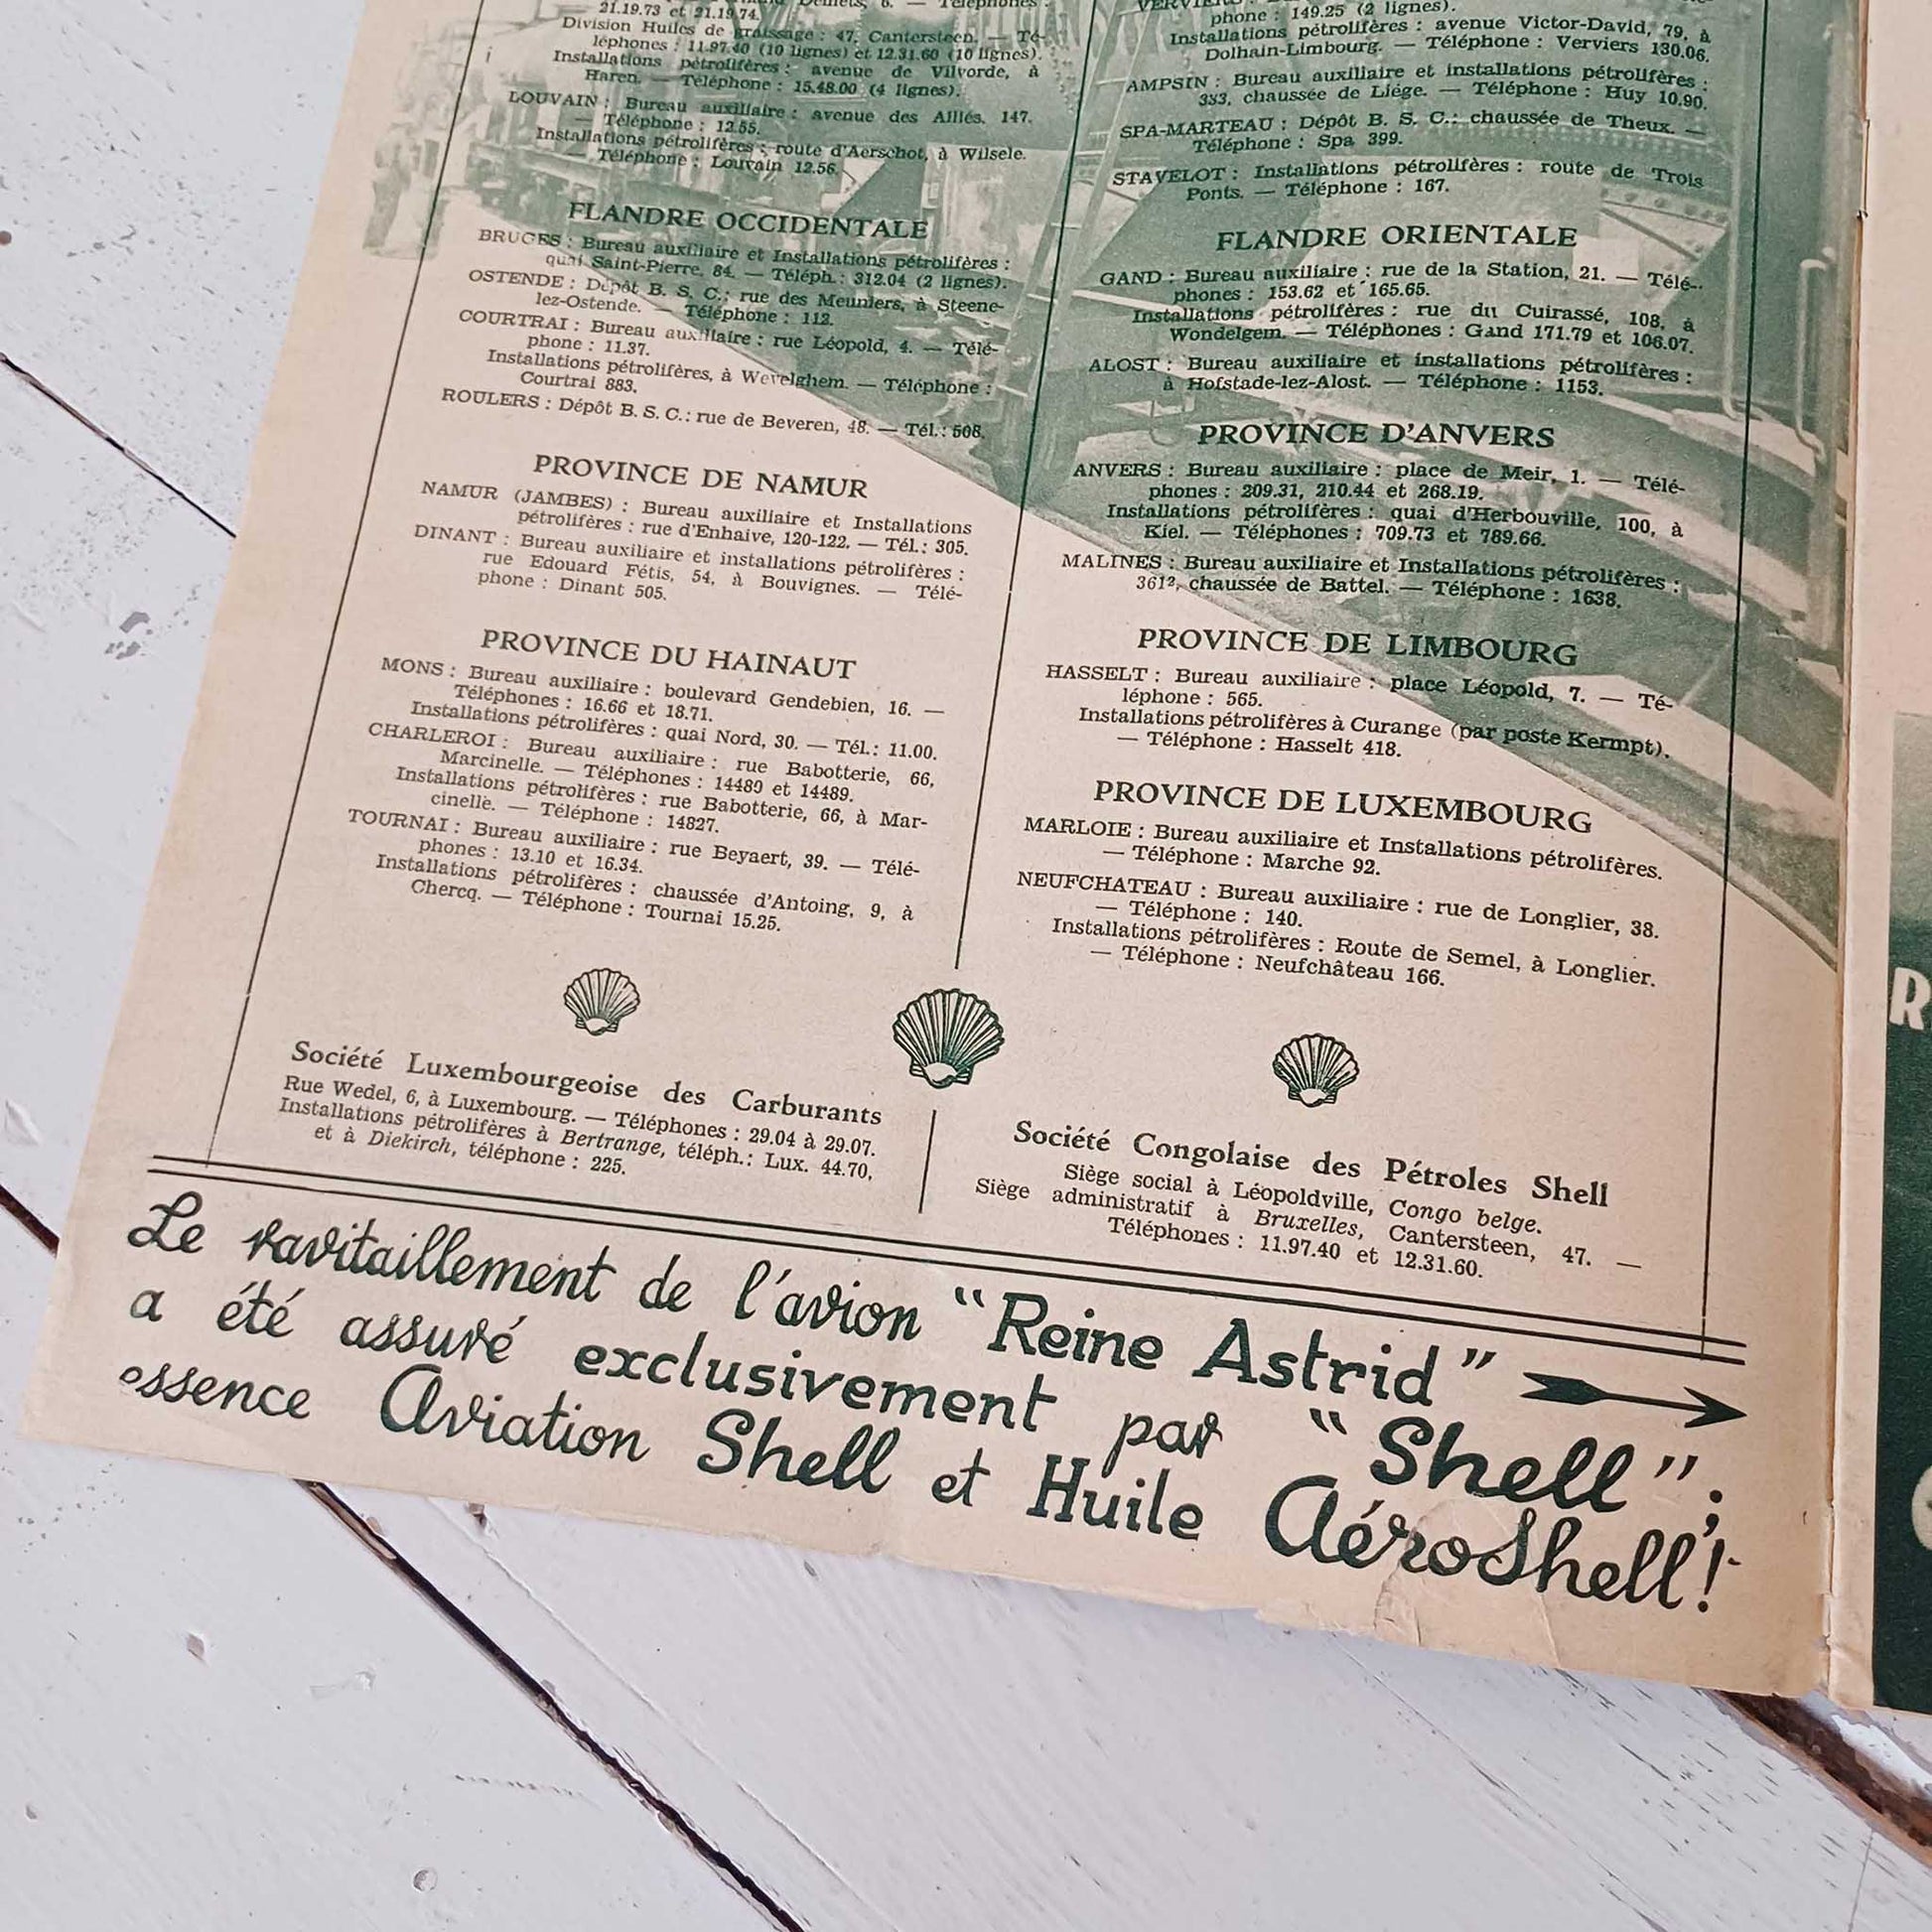 21.19.73 et 21.19.74.
Division Huiles de graissage : 47, Cantersteen. — Té-
léphones : 11.97.40 (10 lignes) et 12.31.60 (10 lignes).
Installations pétrolifères : avenue de Vilvorde, à
Haren. — Téléphone : 15.48.00 (4 lignes).
LOUVAIN : Bureau auxiliaire : avenue des Alliés, 147.
— Téléphone : 12.55.
Installations pétrolifères : route d'Aerschot, à Wilsele.
— Téléphone : Louvain 12.56.
FLANDRE OCCIDENTALE
BRUGES : Bureau auxiliaire et Installations pétrolifères :
quai Saint-Pierre, 84. — Téléph. : 312.04 (2 lignes).
OSTENDE : Dépôt B. S. C.: rue des Meuniers, à Steene-
lez-Ostende. — Téléphone : 112.
COURTRAI : Bureau auxiliaire : rue Léopold, 4. — Télé-
phone : 11.37.
Installations pétrolifères, à Wevelghem. — Téléphone :
Courtrai 883.
ROULERS : Dépôt B. S. C.: rue de Beveren, 48. — Tél.: 508.
PROVINCE DE NAMUR
NAMUR (JAMBES) : Bureau auxiliaire et Installations
pétrolifères : rue d'Enhaive, 120-122. — Tél.: 305.
DINANT : Bureau auxiliaire et installations pétrolifères :
rue Edouard Fétis, 54, à Bouvignes. — Télé-
phone : Dinant 505.
PROVINCE DU HAINAUT
MONS : Bureau auxiliaire : boulevard Gendebien, 16. —
Téléphones : 16.66 et 18.71.
Installations pétrolifères : quai Nord, 30. — Tél.: 11.00.
CHARLEROI : Bureau auxiliaire : rue Babotterie, 66,
Marcinelle. — Téléphones : 14480 et 14489.
Installations pétrolifères : rue Babotterie, 66, à Mar-
cinelle. — Téléphone : 14827.
TOURNAI : Bureau auxiliaire : rue Beyaert, 39. — Télé-
phones : 13.10 et 16.34.
Installations pétrolifères : chaussée d'Antoing, 9, à
Chercq. — Téléphone : Tournai 15.25.
phone : 149.25 (2 lignes).
Installations pétrolifères : avenue Victor-David, 79, à
Dolhain-Limbourg. — Téléphone : Verviers 130.06.
AMPSIN : Bureau auxiliaire et installations pétrolifères :
333, chaussée de Liége. — Téléphone : Huy 10.90.
SPA-MARTEAU : Dépôt B. S. C.: chaussée de Theux. —
Téléphone : Spa 399.
STAVELOT : Installations pétrolifères : route de Trois
Ponts. — Téléphone : 167.
FLANDRE ORIENTALE
GAND : Bureau auxiliaire : rue de la Station, 21. — Télé-
phones : 153.62 et 165.65.
Installations pétrolifères : rue du Cuirassé, 108, à
Wondelgem. — Téléphones : Gand 171.79 et 106.07.
ALOST : Bureau auxiliaire et installations pétrolifères :
à Hofstade-lez-Alost. — Téléphone : 1153.
PROVINCE D'ANVERS
ANVERS : Bureau auxiliaire : place de Meir, 1. — Télé-
phones : 209.31, 210.44 et 268.19.
Installations pétrolifères : quai d'Herbouville, 100, à
Kiel. — Téléphones : 709.73 et 789.66.
MALINES : Bureau auxiliaire et Installations pétrolifères :
361², chaussée de Battel. — Téléphone : 1638.
PROVINCE DE LIMBOURG
HASSELT : Bureau auxiliaire : place Léopold, 7. — Té-
léphone : 565.
Installations pétrolifères à Curange (par poste Kermpt).
— Téléphone : Hasselt 418.
PROVINCE DE LUXEMBOURG
MARLOIE : Bureau auxiliaire et Installations pétrolifères.
— Téléphone : Marche 92.
NEUFCHATEAU : Bureau auxiliaire : rue de Longlier, 38.
— Téléphone : 140.
Installations pétrolifères : Route de Semel, à Longlier.
— Téléphone : Neufchâteau 166.
Société Luxembourgeoise des Carburants
Rue Wedel, 6, à Luxembourg. — Téléphones : 29.04 à 29.07.
Installations pétrolifères à Bertrange, téléph.: Lux. 44.70,
et à Diekirch, téléphone : 225.
Société Congolaise des Pétroles Shell
Siège social à Léopoldville, Congo belge.
Siège administratif à Bruxelles, Cantersteen, 47. —
Téléphones : 11.97.40 et 12.31.60.
Le ravitaillement de l'avion "Reine Astrid"
a été assuré exclusivement par "Shell";
essence Aviation Shell et Huile AéroShell!
R